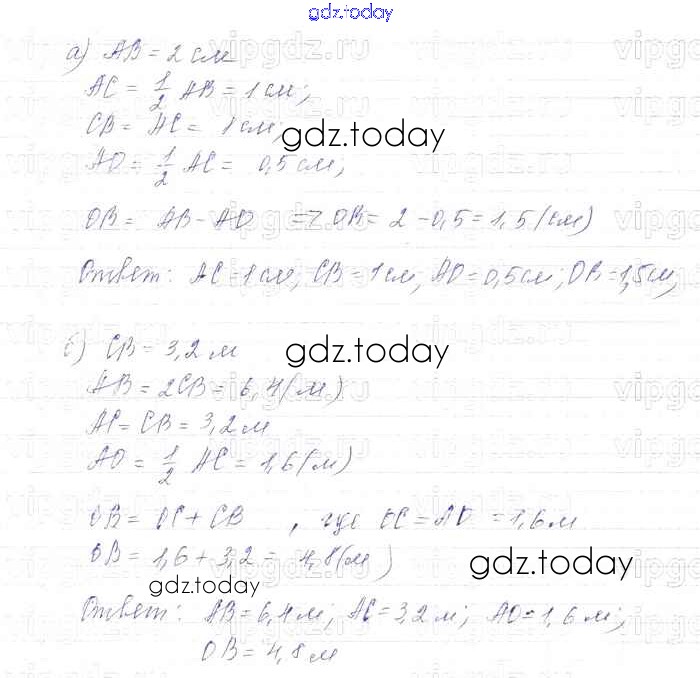 gdz.today
а) AB = 2 см
AC = 1/2 AB = 1 см;
CB = AC = 1 см;
gdz.today
AO = 1/2 AC = 0,5 см;
OB = AB - AO => OB = 2 - 0,5 = 1,5 (см)
Ответ: AC = 1 см, CB = 1 см, AO = 0,5 см, OB = 1,5 см,
б) CB = 3,2 м
gdz.today
AB = 2CB = 6,4 (м)
AC = CB = 3,2 м
AO = 1/2 AC = 1,6 (м)
OB = OC + CB , где OC = AO = 1,6 м
OB = 1,6 + 3,2 = 4,8 (м)
gdz.today
gdz.today
Ответ: AB = 6,4 м; AC = 3,2 м; AO = 1,6 м;
OB = 4,8 м